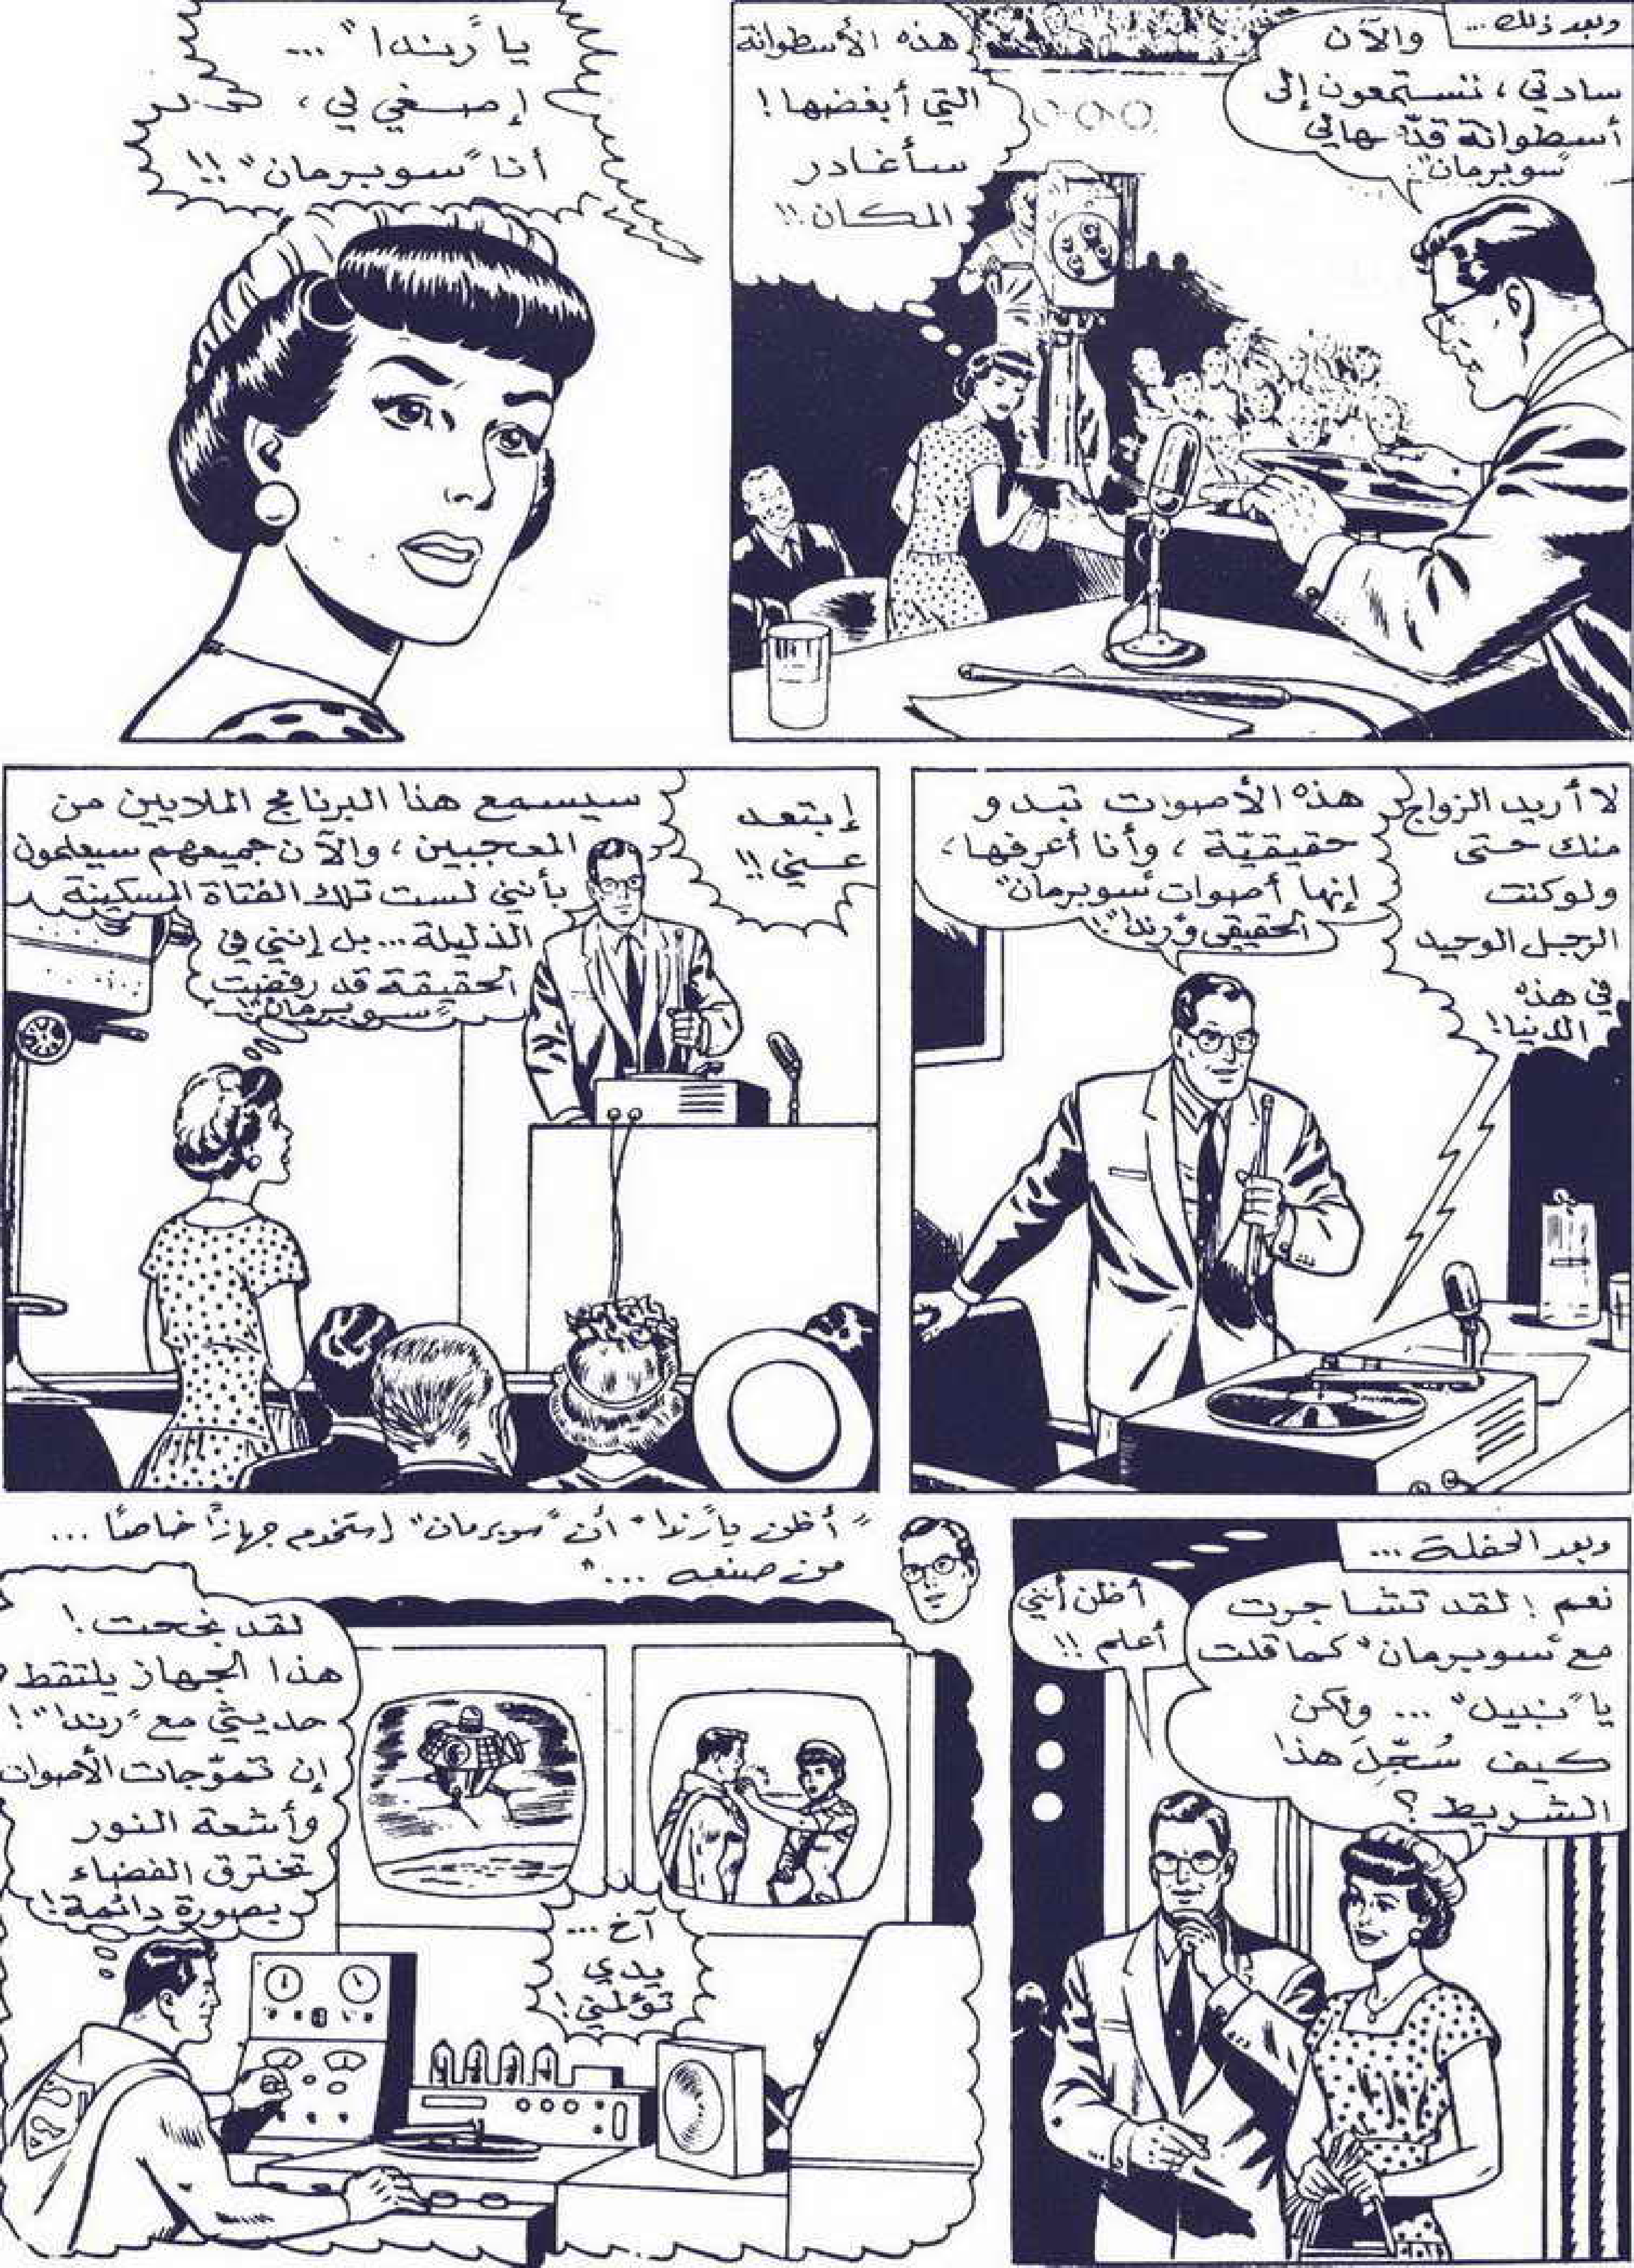 وبعد ذلك ...
والآن
سادتي ، تستمعون إلى
أسطوانة قدّمها لي
"سوبرمان":
هذه الأسطوانة
التي أبغضها !
سأغادر
المكان !!
يا "رندا" ...
إصغي لي ،
أنا "سوبرمان" !!
لا أريد الزواج
منك حتى
ولو كنت
الرجل الوحيد
في هذه
الدنيا !
هذه الأصوات تبدو
حقيقيّة ، وأنا أعرفها ،
إنها أصوات "سوبرمان"
الحقيقي و"رندا" !
إبتعد
عني !!
سيسمع هذا البرنامج الملايين من
المعجبين ، والآن جميعهم سيعلمون
بأنني لست تلك الفتاة المسكينة
الذليلة ... بل إنني في
الحقيقة قد رفضت
"سوبرمان" !!
وبعد الحفلة ...
نعم ! لقد تشاجرت
مع "سوبرمان" كما قلت
يا "نبيل" ... ولكن
كيف سُجّلَ هذا
الشريط ؟
أظن أنني
أعلم !!
" أظن يا "رندا" أن "سوبرمان" إستخدم جهازاً خاصاً ...
من صنعه ... "
لقد نجحت !
هذا الجهاز يلتقط
حديثي مع "رندا" !
إن تموّجات الأصوات
وأشعة النور
تخترق الفضاء
بصورة دائمة !
آخ ...
يدي
تؤلمني !